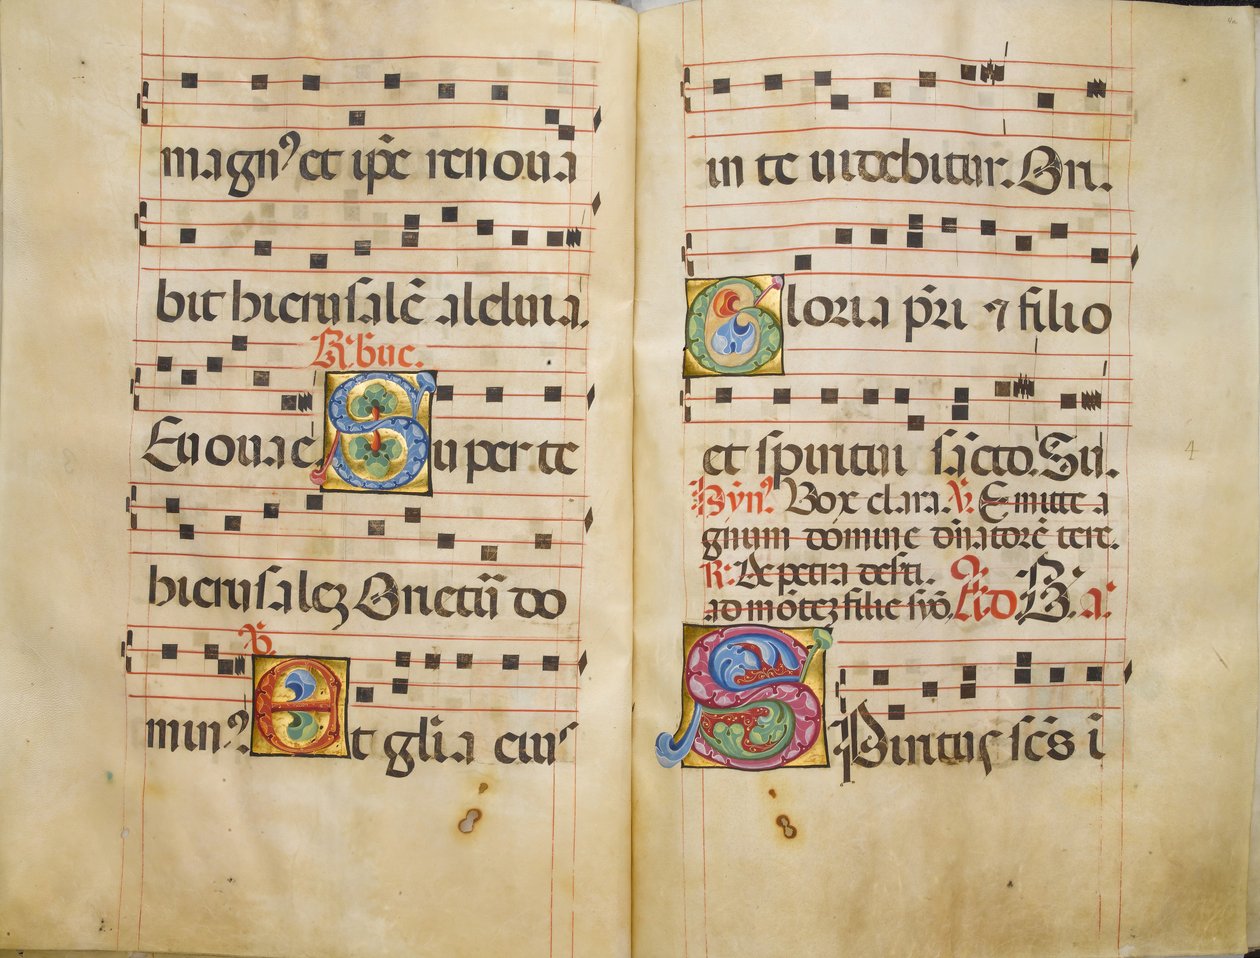 magnꝰ et ip̃e renoua
bit hierusalẽ alleluia.
R̃. bñe.
Euouae Super te
hierusalez Orietũ do
minꝰ V̓. Et gl̃ia eius
in te uidebitur. Ori.
Gloria p̃ri ⁊ filio
et spiritui sãcto. Su.
Hỹnꝰ. Vox clara. V̓. Emitte a
gnum domine dñatorẽ terre.
R̃. De petra deserti.
ad mõtez filie syõ. Ad B̃. a.
Spiritus sc̃s i
4